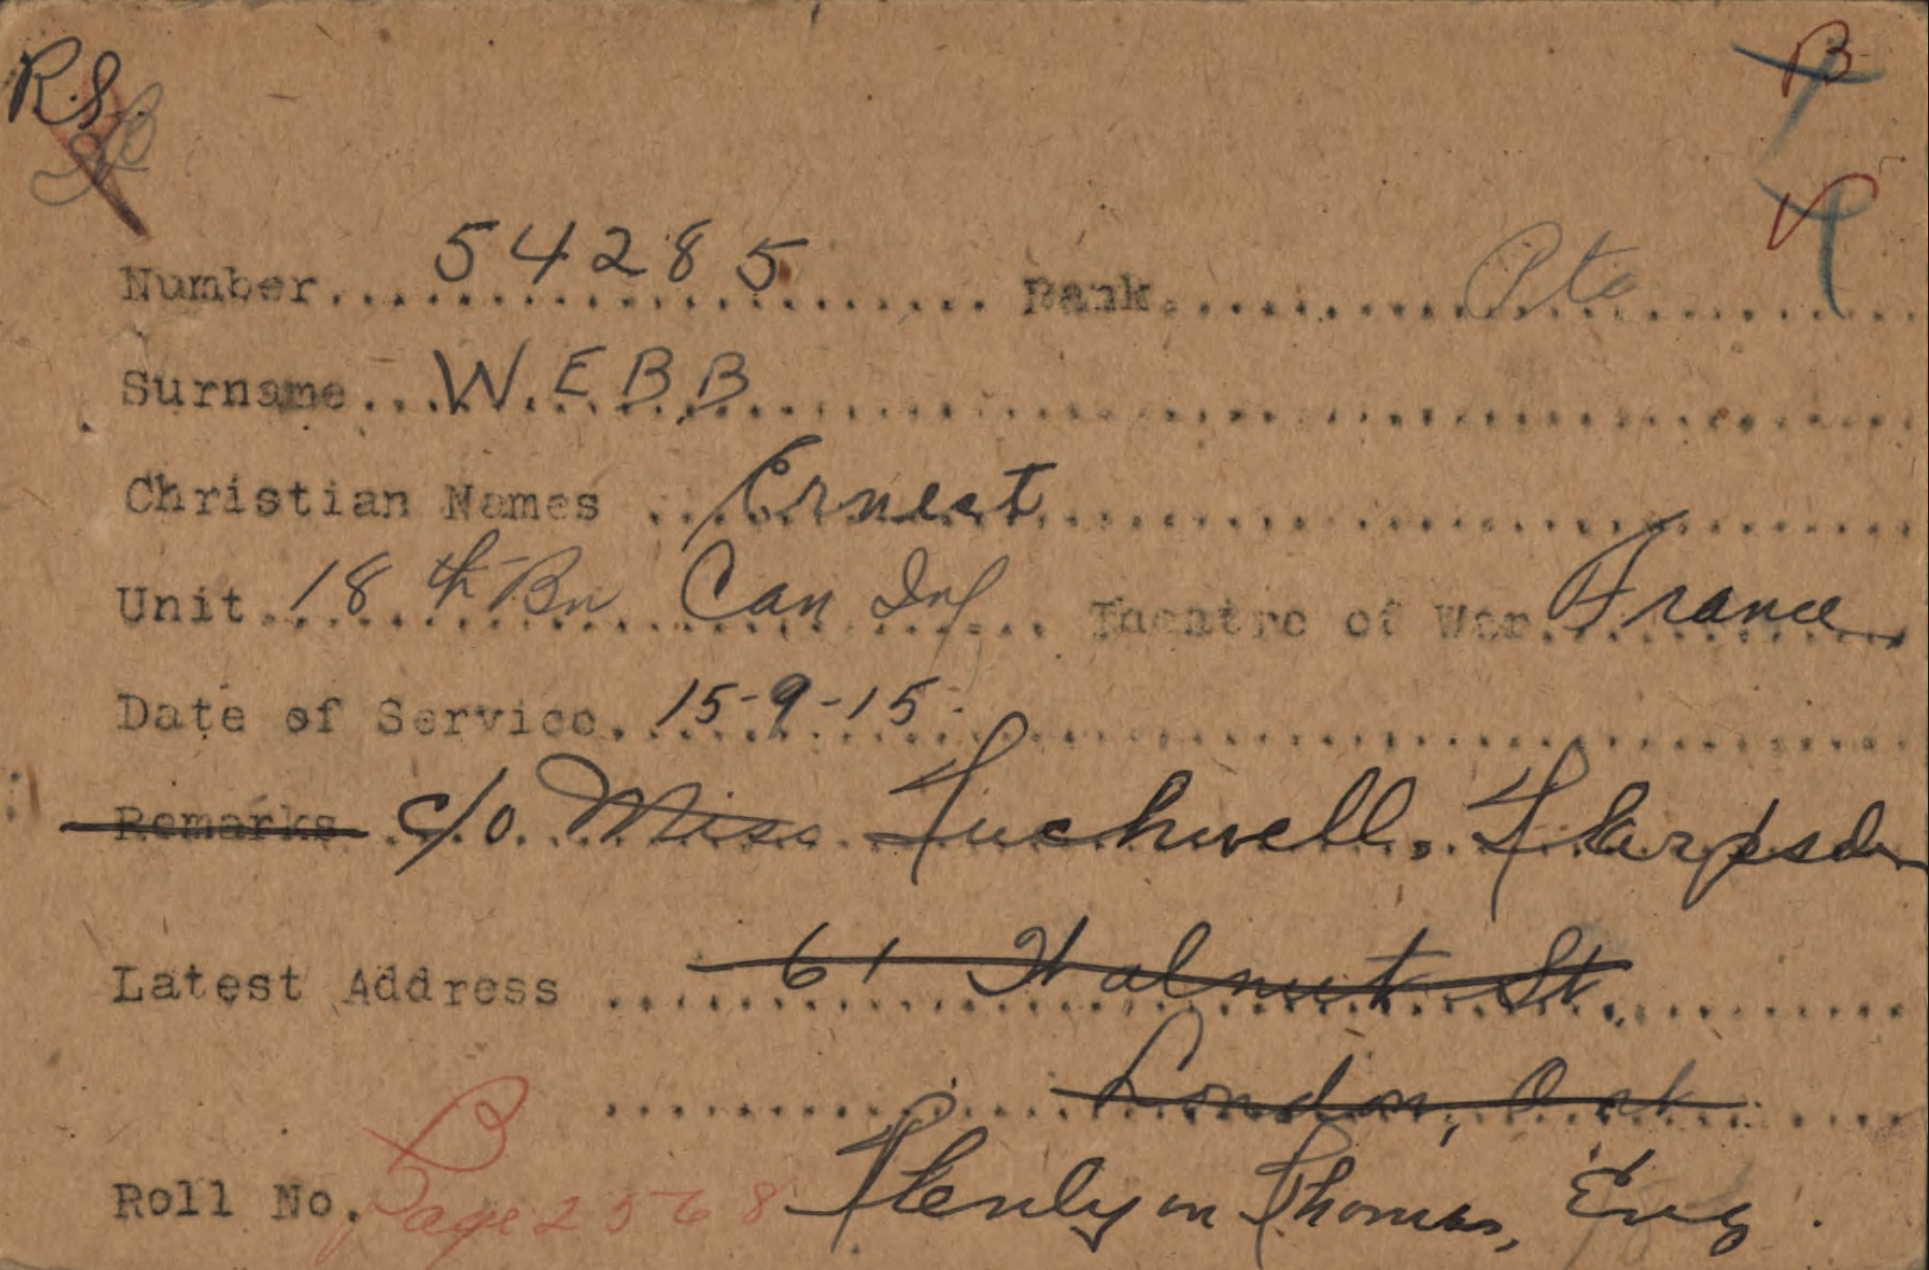 R.S.
B
Number 54285 Rank Pte
V
Surname WEBB
Christian Names Ernest
Unit 18th Bn Can Inf Theatre of War France
Date of Service 15-9-15-
Remarks c/o Miss Tuckwell, Harpsden
Latest Address 61 Walnut St.
London, Ont
B
Roll No. Page 2568 Henly on Thomas, Eng.